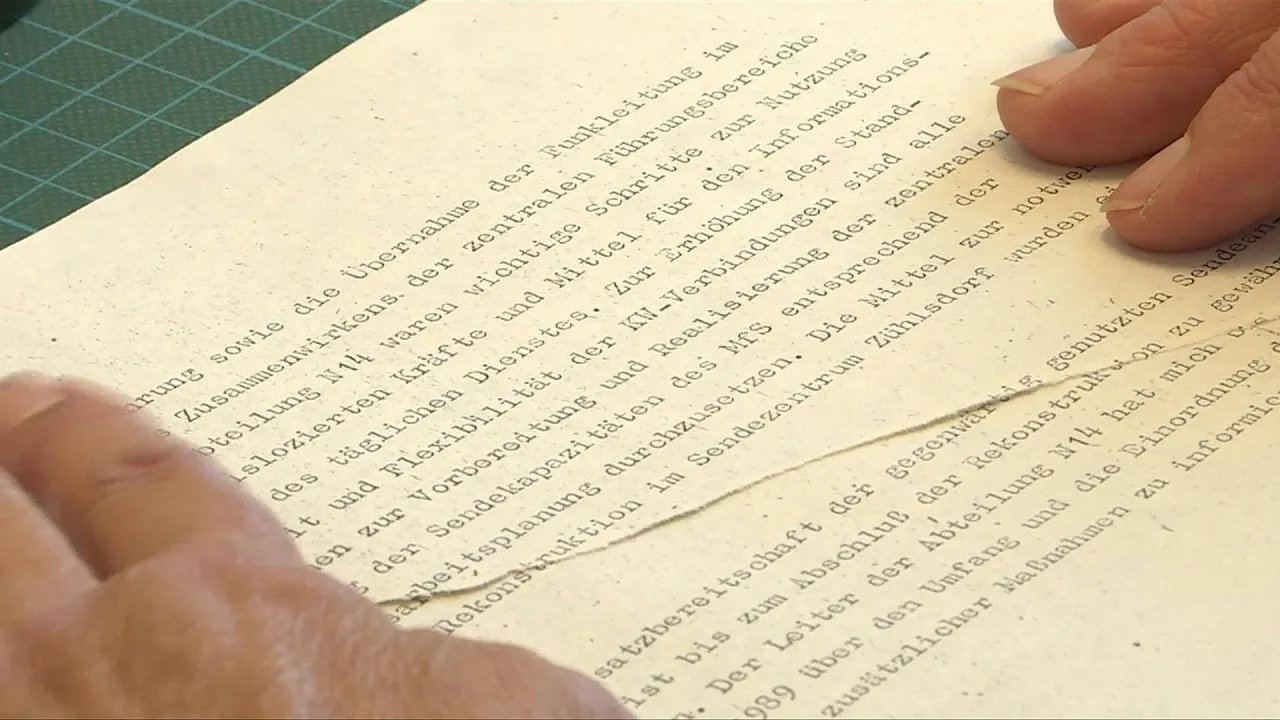 hrung sowie die Übernahme der Funkleitung im
Zusammenwirkens der zentralen Führungsbereiche
bteilung N14 waren wichtige Schritte zur Nutzung
slozierten Kräfte und Mittel für den Informations-
des täglichen Dienstes. Zur Erhöhung der Ständ-
it und Flexiblität der KW-Verbindungen sind alle
en zur Vorbereitung und Realisierung der zentralen
der Sendekapazitäten des MfS entsprechend der
arbeitsplanung durchzusetzen. Die Mittel zur notwen
Rekonstruktion im Sendezentrum Zühlsdorf wurden
satzbereitschaft der gegenwärtig genutzten Sendean
ist bis zum Abschluß der Rekonstruktion zu gewähr
n. Der Leiter der Abteilung N14 hat mich
989 über den Umfang und die Einordnung d
zusätzlicher Maßnahmen zu informie